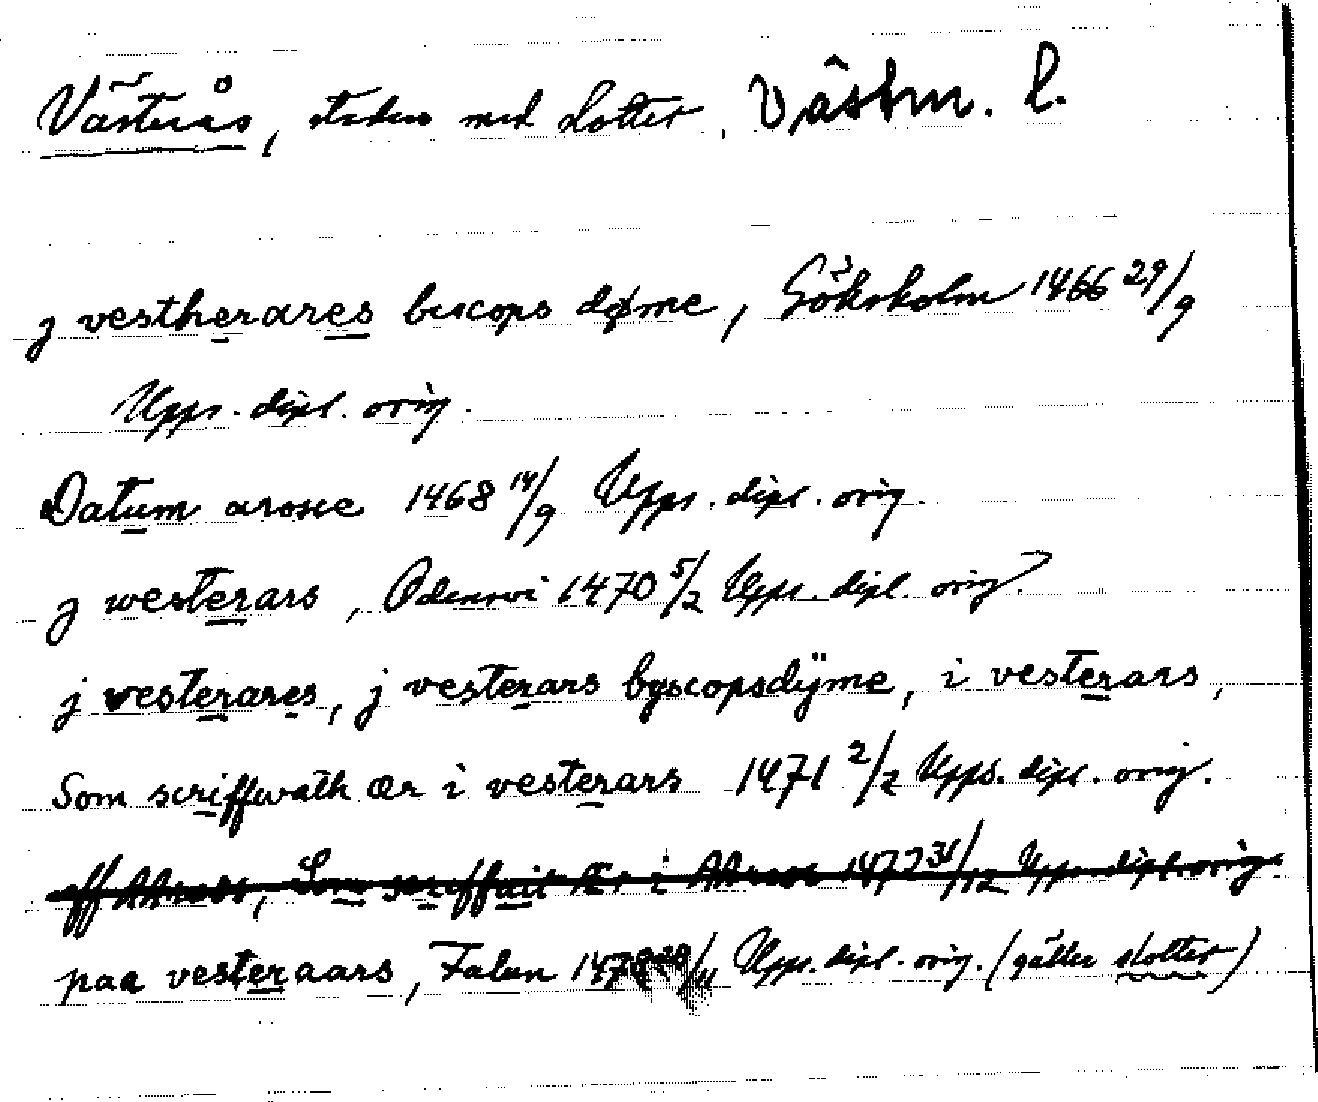 Västerås, staden med slottet. Västm. l.
j vestherares biscops døme, Göksholm 1466 29/9
Upps. dipl. orig.
Datum arosie 1468 14/9 Upps. dipl. orig.
j westerars, Odensvi 1470 5/2 Upps. dipl. orig.
j vesterares, j vesterars byscopsdÿme, i vesterars,
Som scriffwath ær i vesterars 1471 2/2 Upps. dipl. orig.
aff Som scriffuit ær i 1477 31/12 Upps. dipl. orig.
paa vesteraars, Falun /11 Upps. dipl. orig. (gäller slottet)